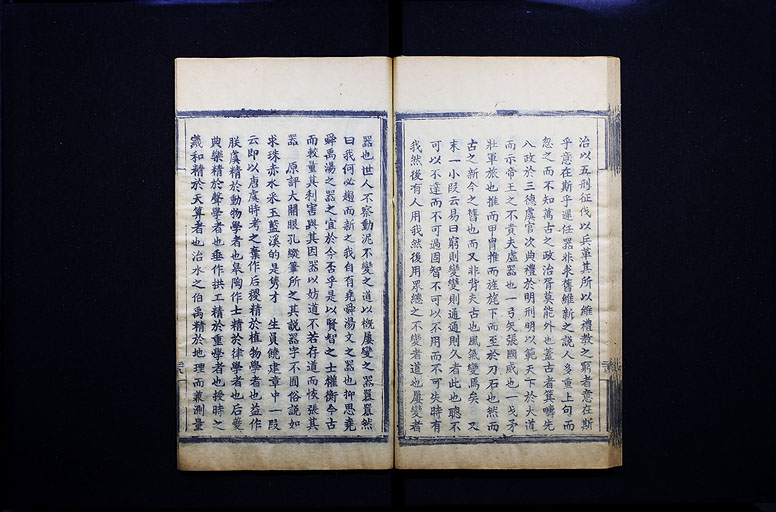 治以五刑征伐以兵革其所以維禮教之窮者意在斯
乎意在斯乎遲任器非求舊維新之說人多重上句而
忽之而不知萬古之政治胥莫能外也蓋古者箕疇先
八政於三德虞官次典禮於明刑明以範天下於大道
而示帝王之不貴夫虛器也一弓矢張國威也一戈矛
壯軍旅也推而甲冑推而旌旄下而至於刀石也然而
古之新今之舊也而又非背夫古也風氣變焉矣 又
末一小段云易曰窮則變變則通通則久者此也聰不
可以不達而不可過固智不可以不用而不可失時有
我然後有人用我然後用眾總之不變者道也屢變者
器也世人不察動泥不變之道以概屢變之器囂囂然
曰我何必趨而新之我自有堯舜湯文之器也抑思堯
舜禹湯之器之宜於今否乎是以賢智之士權衡今古
而較量其利害與其因器以妨道不若存道而恢張其
器 原評大開眼孔縱筆所之其說器字不圓俗說如
求珠赤水采玉藍溪的是雋才 生員 建章中一段
云即以唐虞時考之棄作后稷精於植物學者也益作
朕虞精於動物學者也皋陶作士精於律學者也后夔
典樂精於聲學者也垂作拱工精於重學者也授時之
羲和精於天算者也治水之伯禹精於地理而兼測量